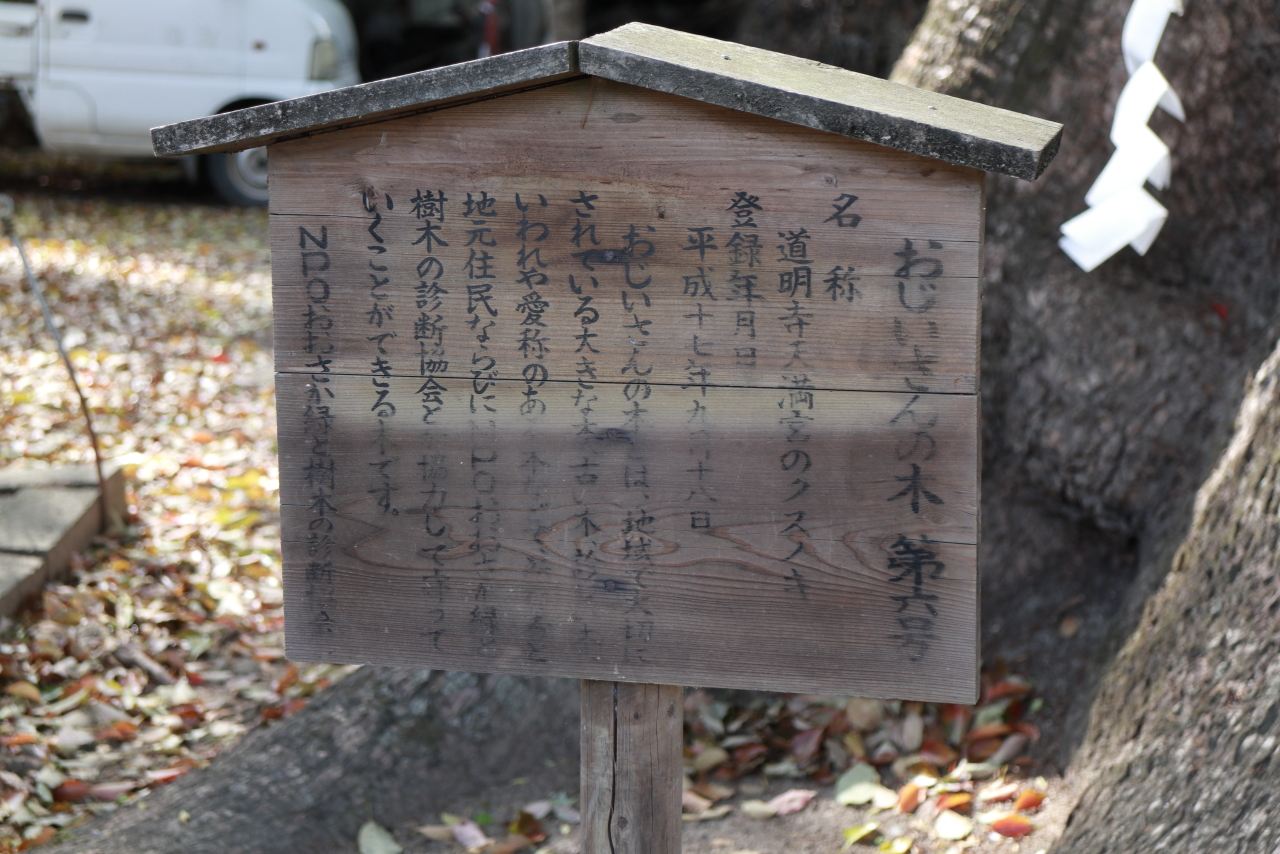 おじいさんの木 第六号
名称
道明寺天満宮のクスノキ
登録年月日
平成十七年九月十八日
おじいさんの木とは、地域で大切に
されている大きな木、古い木
いわれや愛称のある木
地元住民ならびにNPOおおさか緑と
樹木の診断協会と協力して守って
いくことができる木です。
NPOおおさか緑と樹木の診断協会